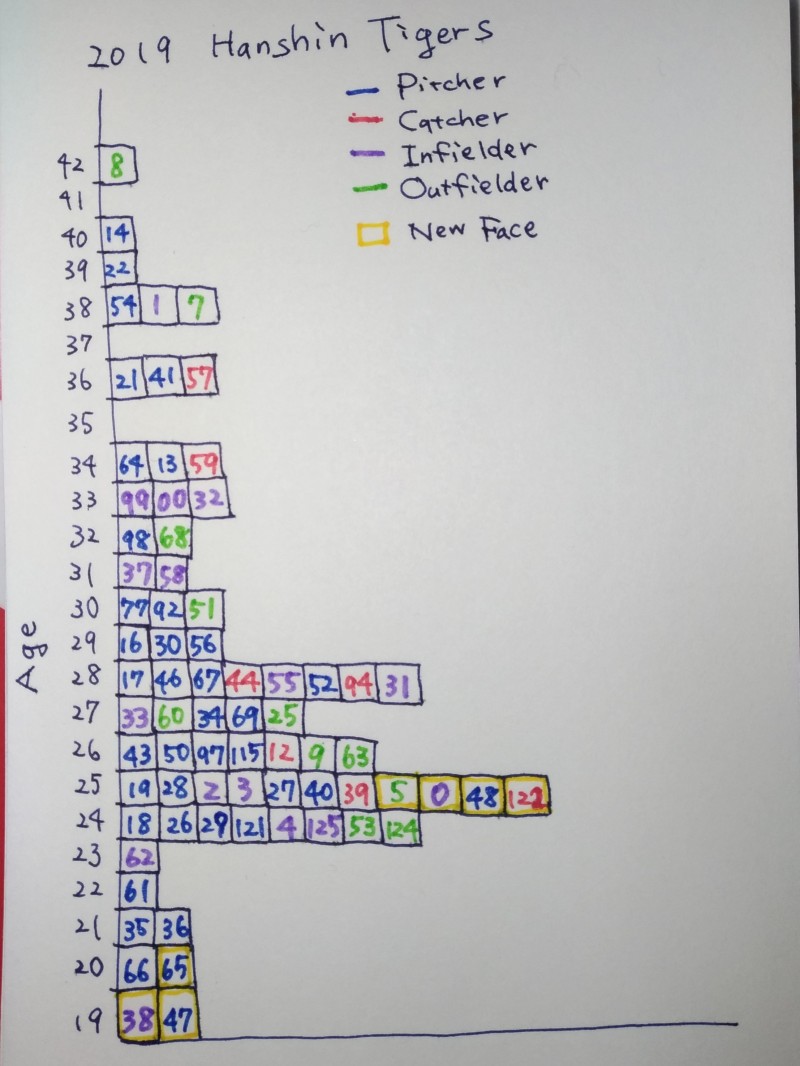 2019 Hanshin Tigers
Pitcher
Catcher
Infielder
Outfielder
New Face
Age
42 8
41
40 14
39 22
38 54 1 7
37
36 21 41 57
35
34 64 13 59
33 99 00 32
32 98 68
31 37 58
30 77 92 51
29 16 30 56
28 17 46 67 44 55 52 94 31
27 33 60 34 69 25
26 43 50 97 115 12 9 63
25 19 28 2 3 27 40 39 5 0 48
24 18 26 29 121 4 125 53 124
23 62
22 61
21 35 36
20 66 65
19 38 47